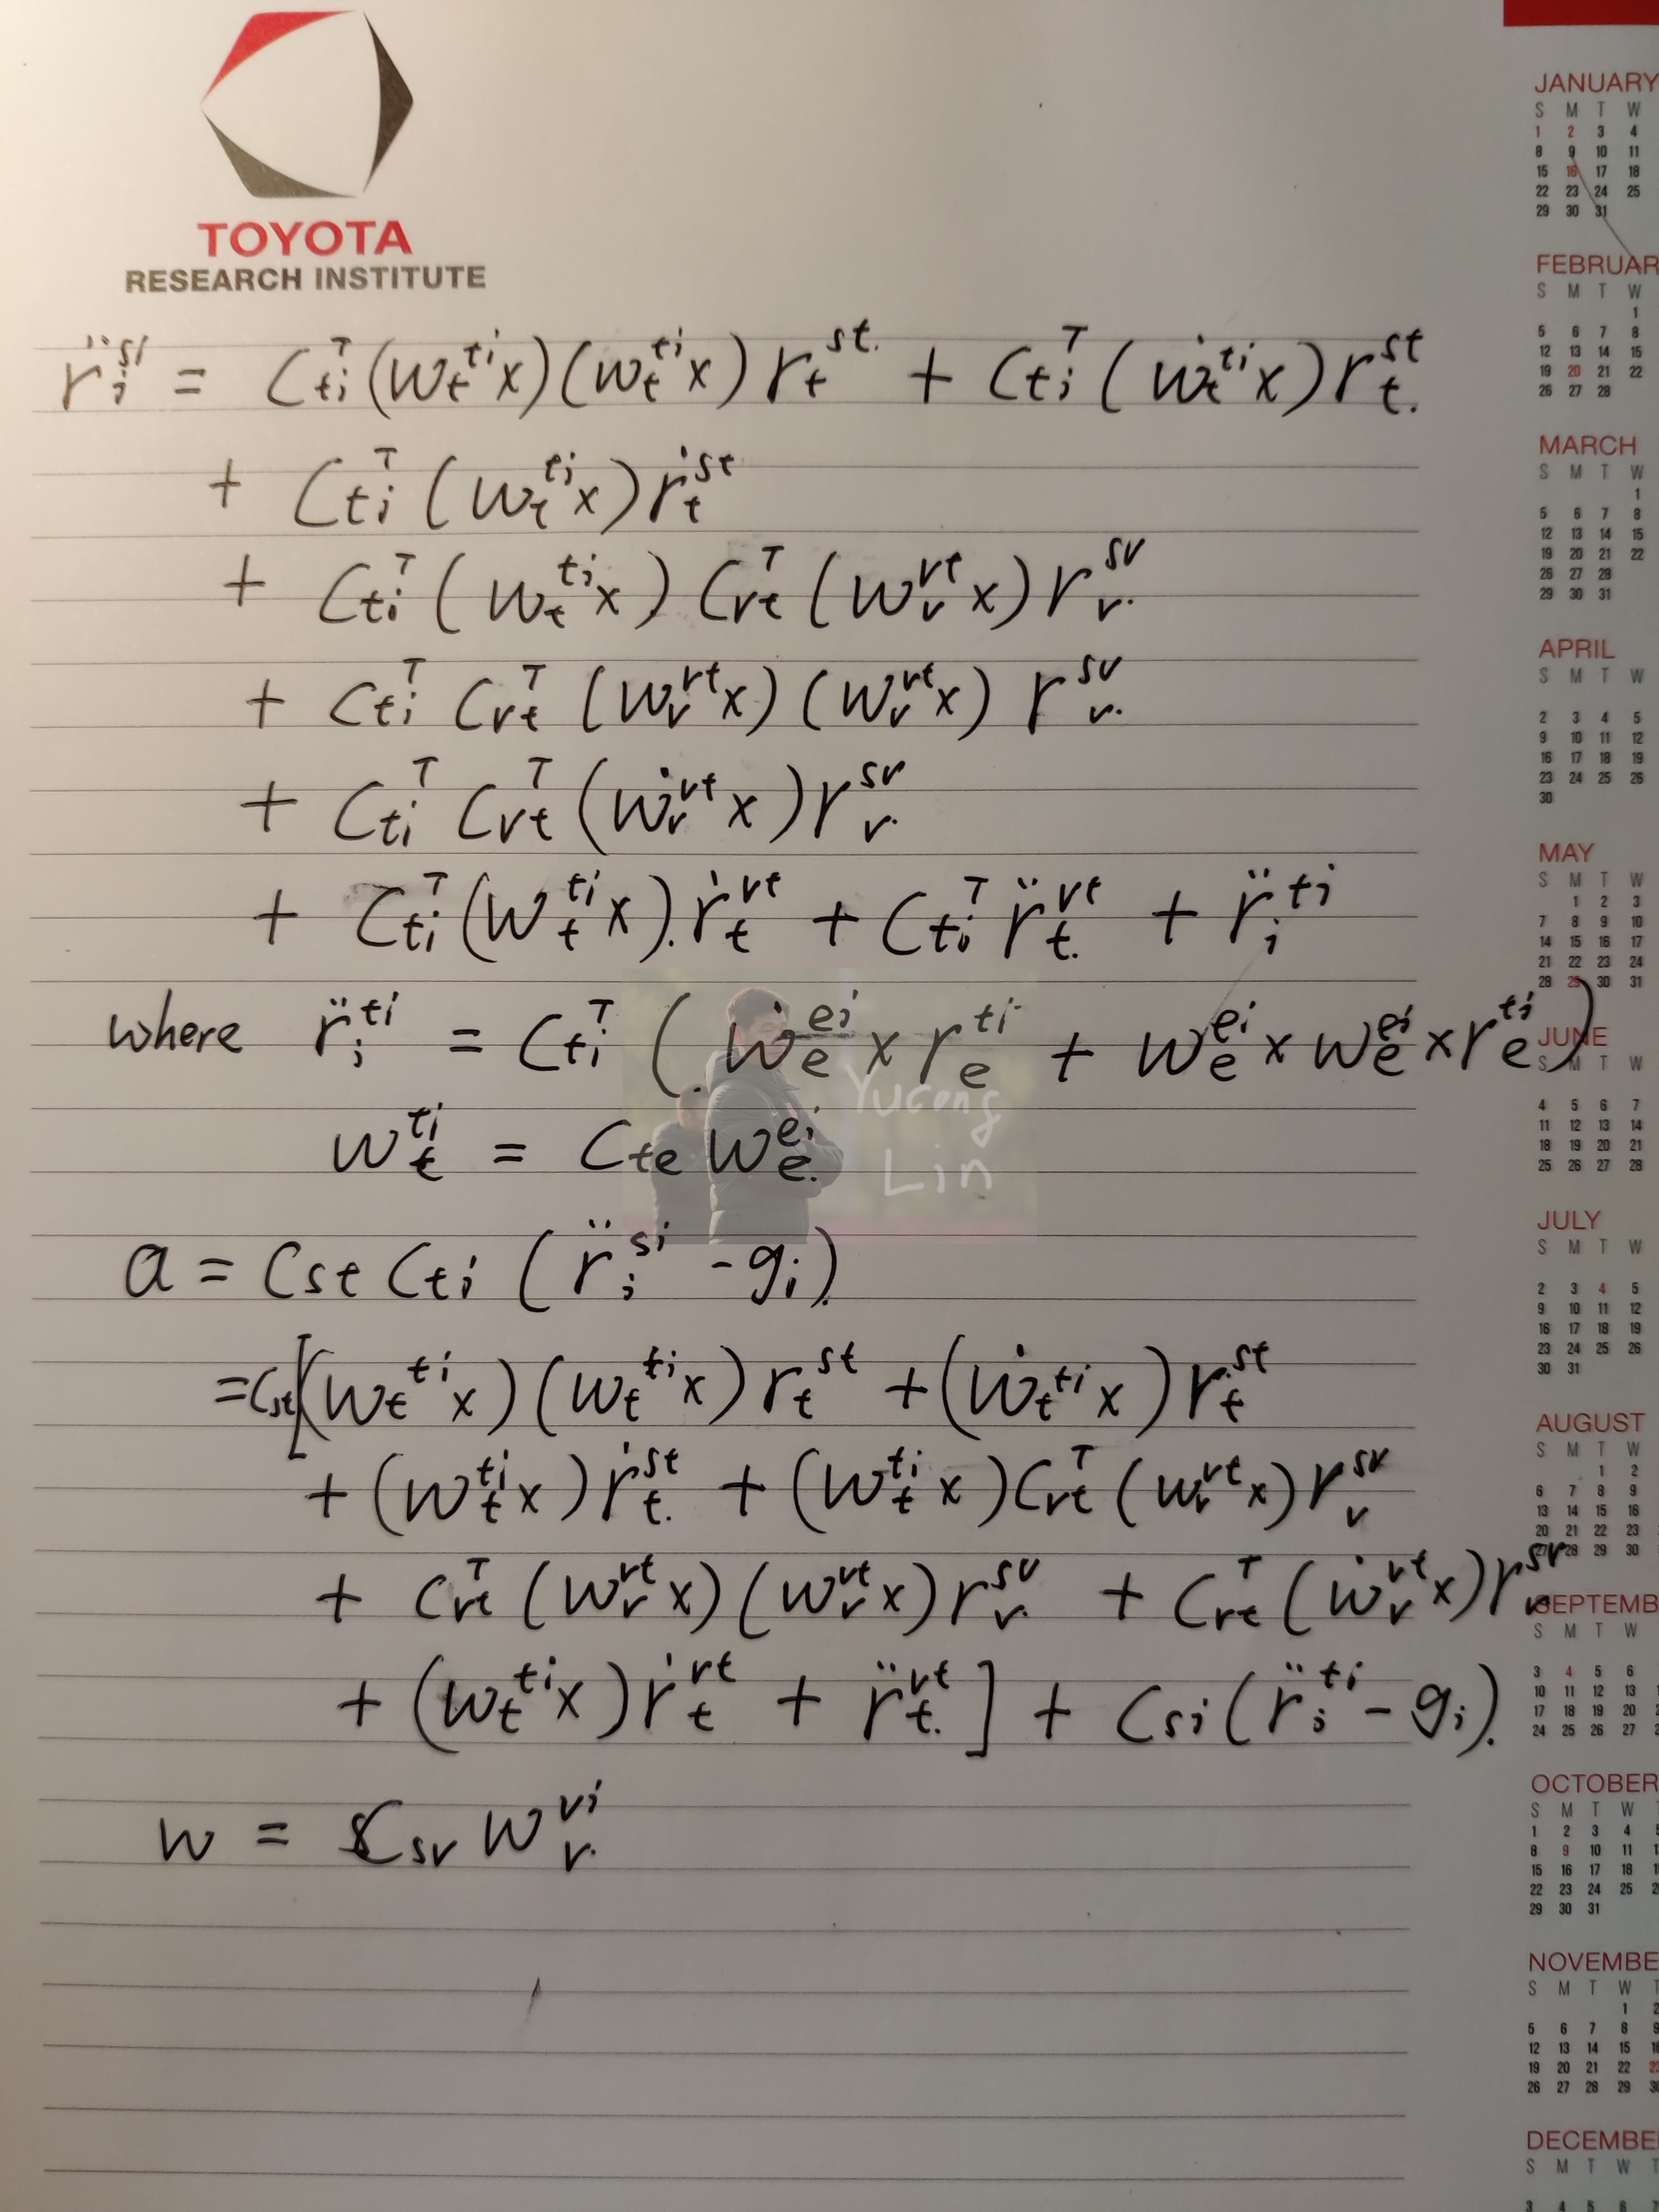 TOYOTA
RESEARCH INSTITUTE
r̈ᵢˢⁱ = C_{ti}^T (w_t^{ti}×)(w_t^{ti}×) r_t^{st} + C_{ti}^T (ẇ_t^{ti}×) r_t^{st}
+ C_{ti}^T (w_t^{ti}×) ṙ_t^{st}
+ C_{ti}^T (w_t^{ti}×) C_{vt}^T (w_v^{vt}×) r_v^{sv}
+ C_{ti}^T C_{vt}^T (w_v^{vt}×)(w_v^{vt}×) r_v^{sv}
+ C_{ti}^T C_{vt}^T (ẇ_v^{vt}×) r_v^{sv}
+ C_{ti}^T (w_t^{ti}×) ṙ_t^{vt} + C_{ti}^T r̈_t^{vt} + r̈_i^{ti}
where r̈_i^{ti} = C_{ti}^T (ẇ_e^{ei} × r_e^{ti} + w_e^{ei} × w_e^{ei} × r_e^{ti})
w_t^{ti} = C_{te} w_e^{ei}
Yucong
Lin
a = C_{st} C_{ti} (r̈_i^{si} - g_i)
= C_{st} [(w_t^{ti}×)(w_t^{ti}×) r_t^{st} + (ẇ_t^{ti}×) r_t^{st}
+ (w_t^{ti}×) ṙ_t^{st} + (w_t^{ti}×) C_{vt}^T (w_v^{vt}×) r_v^{sv}
+ C_{vt}^T (w_v^{vt}×)(w_v^{vt}×) r_v^{sv} + C_{vt}^T (ẇ_v^{vt}×) r_v^{sv}
+ (w_t^{ti}×) ṙ_t^{vt} + r̈_t^{vt}] + C_{si} (r̈_i^{ti} - g_i)
w = C_{sv} w_v^{vi}
JANUARY
S M T W
1 2 3 4
8 9 10 11
15 16 17 18
22 23 24 25
29 30 31
FEBRUAR
S M T W
1
5 6 7 8
12 13 14 15
19 20 21 22
26 27 28
MARCH
S M T W
1
5 6 7 8
12 13 14 15
19 20 21 22
26 27 28
29 30 31
APRIL
S M T W
2 3 4 5
9 10 11 12
16 17 18 19
23 24 25 26
30
MAY
S M T W
1 2 3
7 8 9 10
14 15 16 17
21 22 23 24
28 29 30 31
JUNE
S M T W
4 5 6 7
11 12 13 14
18 19 20 21
25 26 27 28
JULY
S M T W
2 3 4 5
9 10 11 12
16 17 18 19
23 24 25 26
30 31
AUGUST
S M T W
1 2
6 7 8 9
13 14 15 16
20 21 22 23
27 28 29 30
SEPTEMB
S M T W
3 4 5 6
10 11 12 13
17 18 19 20
24 25 26 27
OCTOBER
S M T W
1 2 3 4
8 9 10 11
15 16 17 18
22 23 24 25
29 30 31
NOVEMBE
S M T W
1
5 6 7 8
12 13 14 15
19 20 21 22
26 27 28 29
DECEMBE
S M T W
3 4 5 6